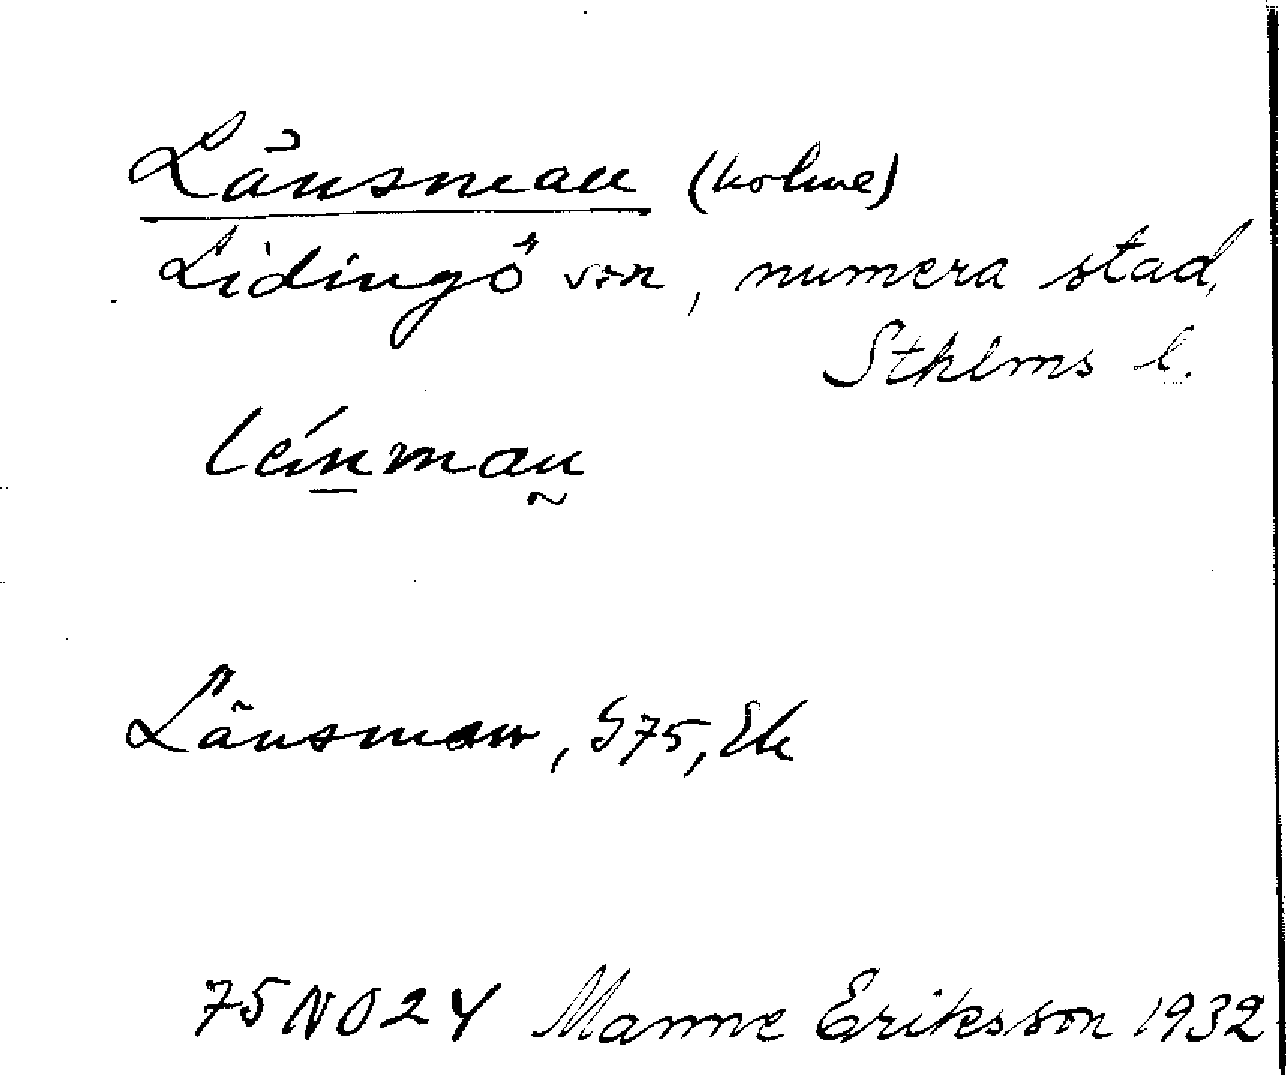 Länsman (holme)
Lidingö sn, numera stad,
Sthlms l.
lénman
Länsman, S75, Ek
75NO2Y Manne Eriksson 1932